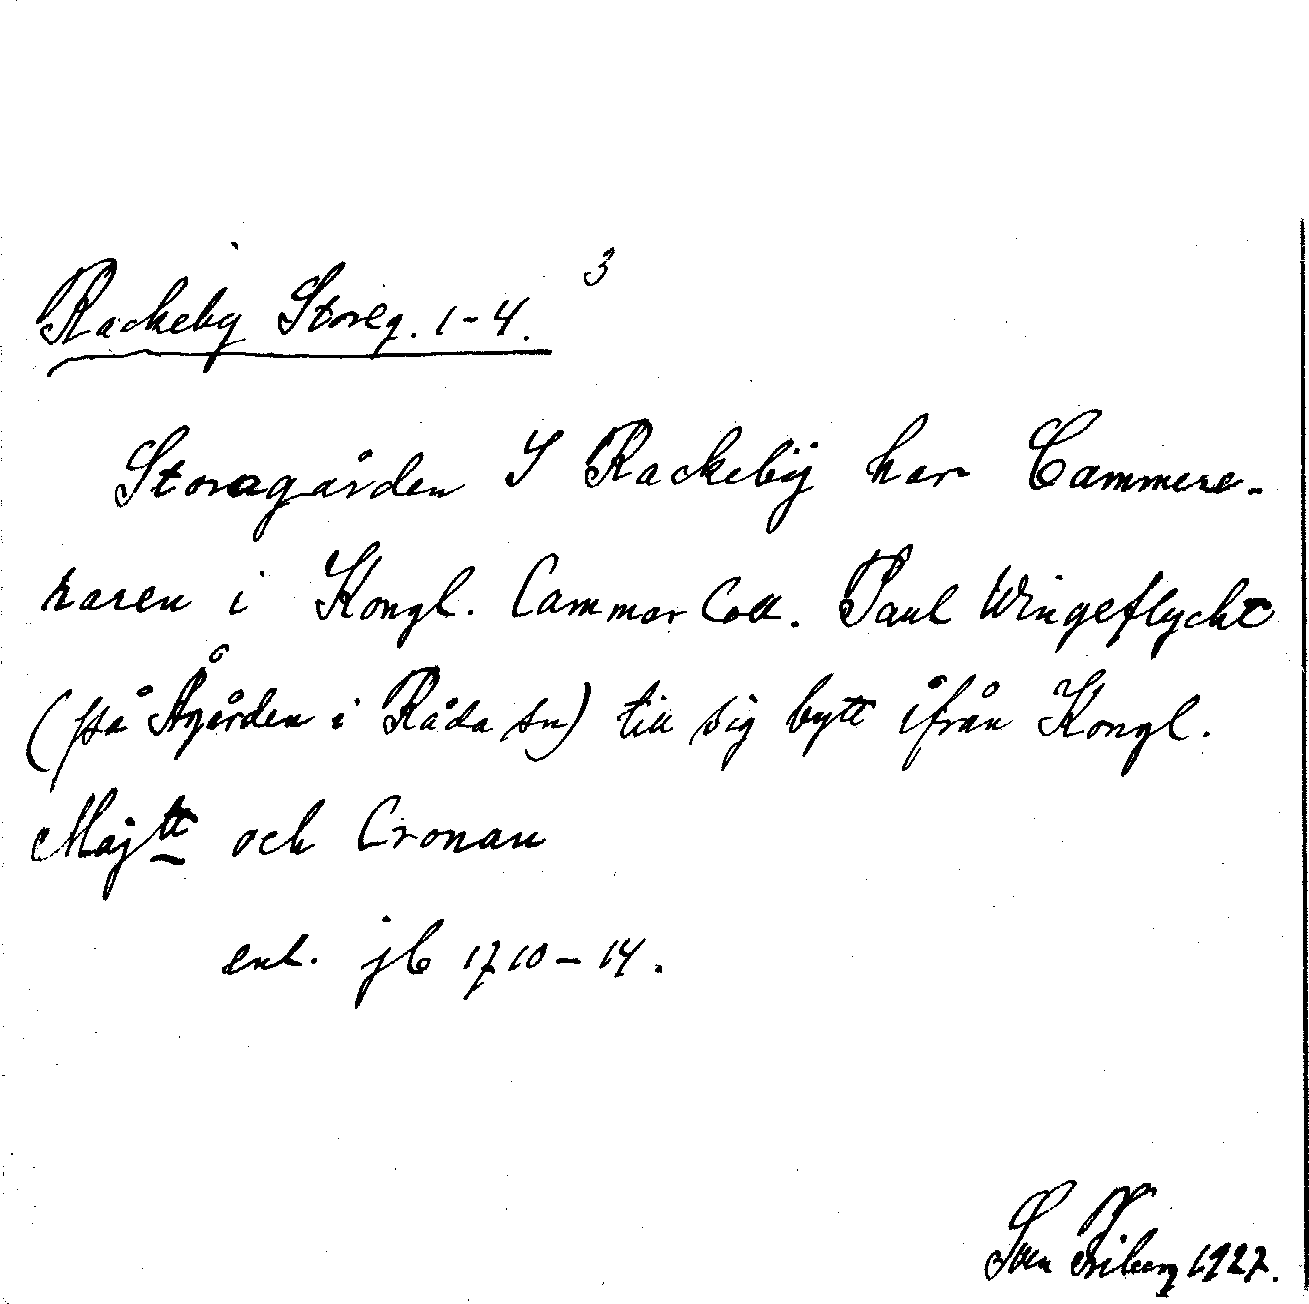 3
Rackeby Storeg. 1-4.
Storagården I Rackebÿ har Cammere-
raren i Kongl. Cammar Coll. Paul Wingeflycht
(på Ågården i Råda sn) till sig bytt ifrån Kongl.
Majtt och Cronan
enl. jb 1710-14.
Sven Friberg 1927.